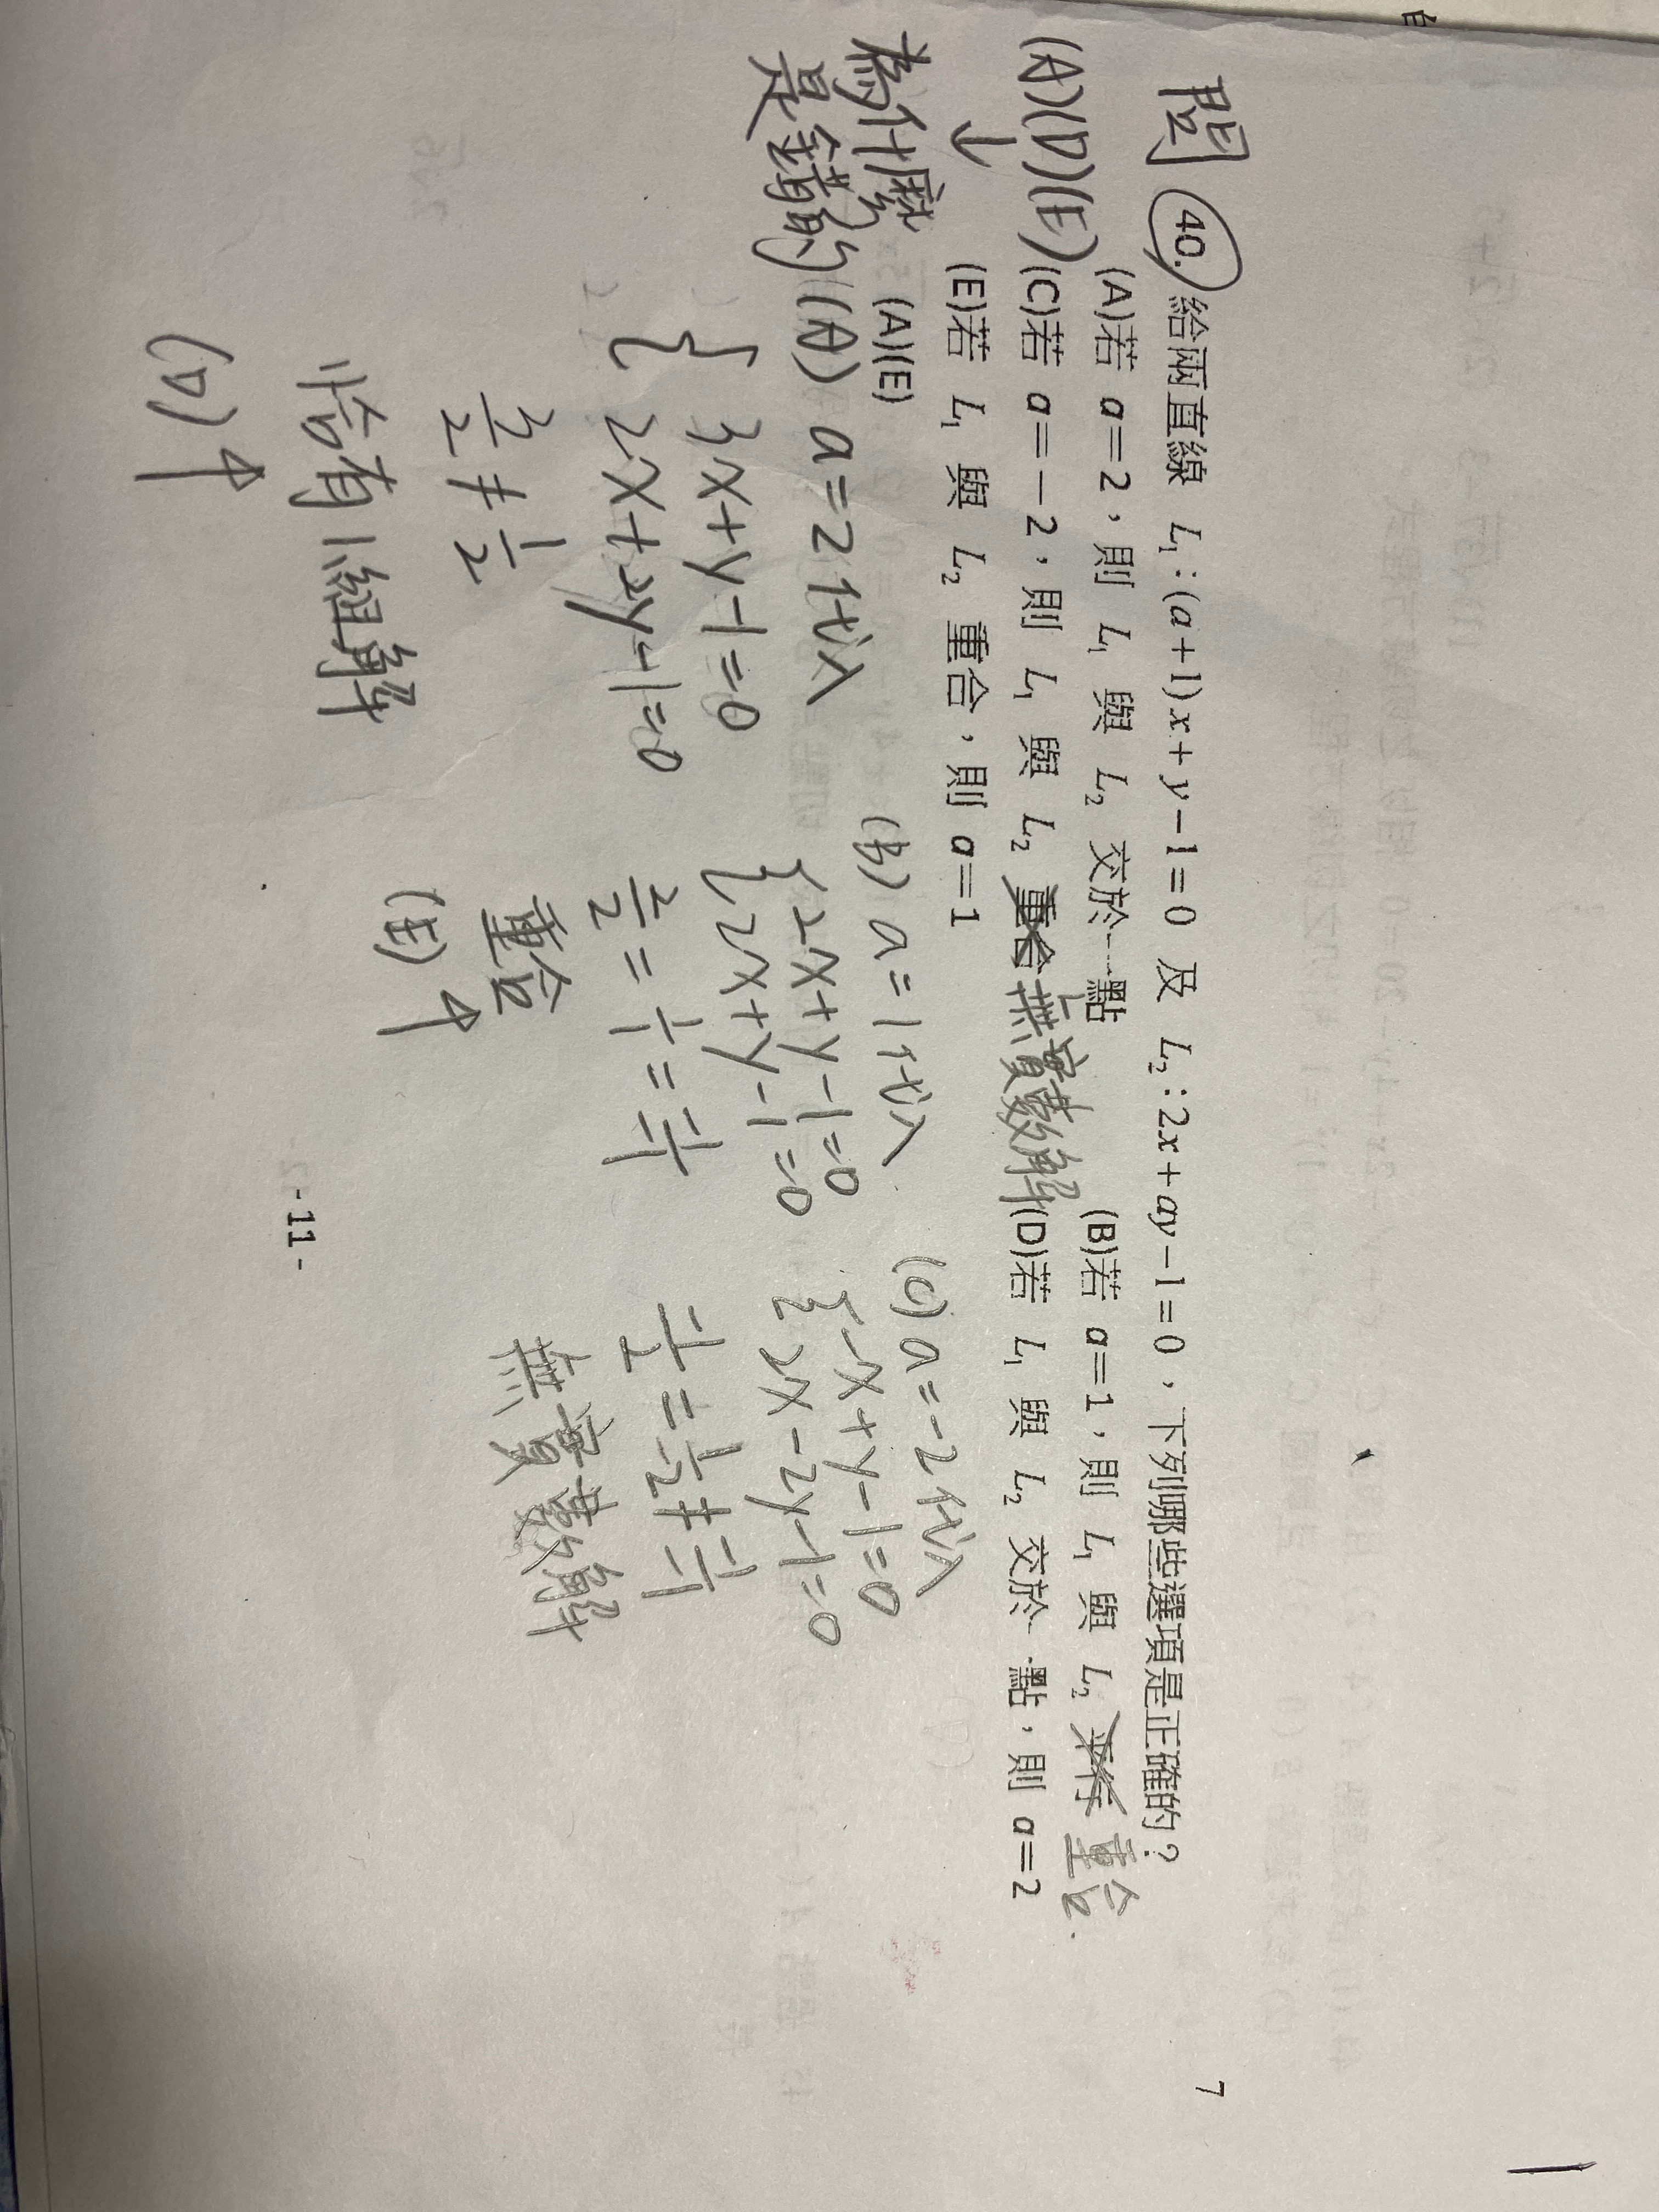 7
問 40. 給兩直線 L₁:(a+1)x+y−1=0 及 L₂:2x+ay−1=0,下列哪些選項是正確的?
(A)(D)(E) (A)若 a=2,則 L₁ 與 L₂ 交於一點 (B)若 a=1,則 L₁ 與 L₂ 平行 重合.
(C)若 a=−2,則 L₁ 與 L₂ 重合 無實數解 (D)若 L₁ 與 L₂ 交於一點,則 a=2
(E)若 L₁ 與 L₂ 重合,則 a=1
↓
為什麼
是錯的
(A)(E)
(A) a=2代入
{ 3x+y−1=0
2x+2y−1=0
3/2 ≠ 1/2
恰有1組解
(D)↑
(B) a=1代入
{ 2x+y−1=0
2x+y−1=0
2/2 = 1/1 = −1/−1
重合
(E)↑
(C) a=−2代入
{ −x+y−1=0
2x−2y−1=0
−1/2 = 1/−2 ≠ −1/−1
無實數解
- 11 -